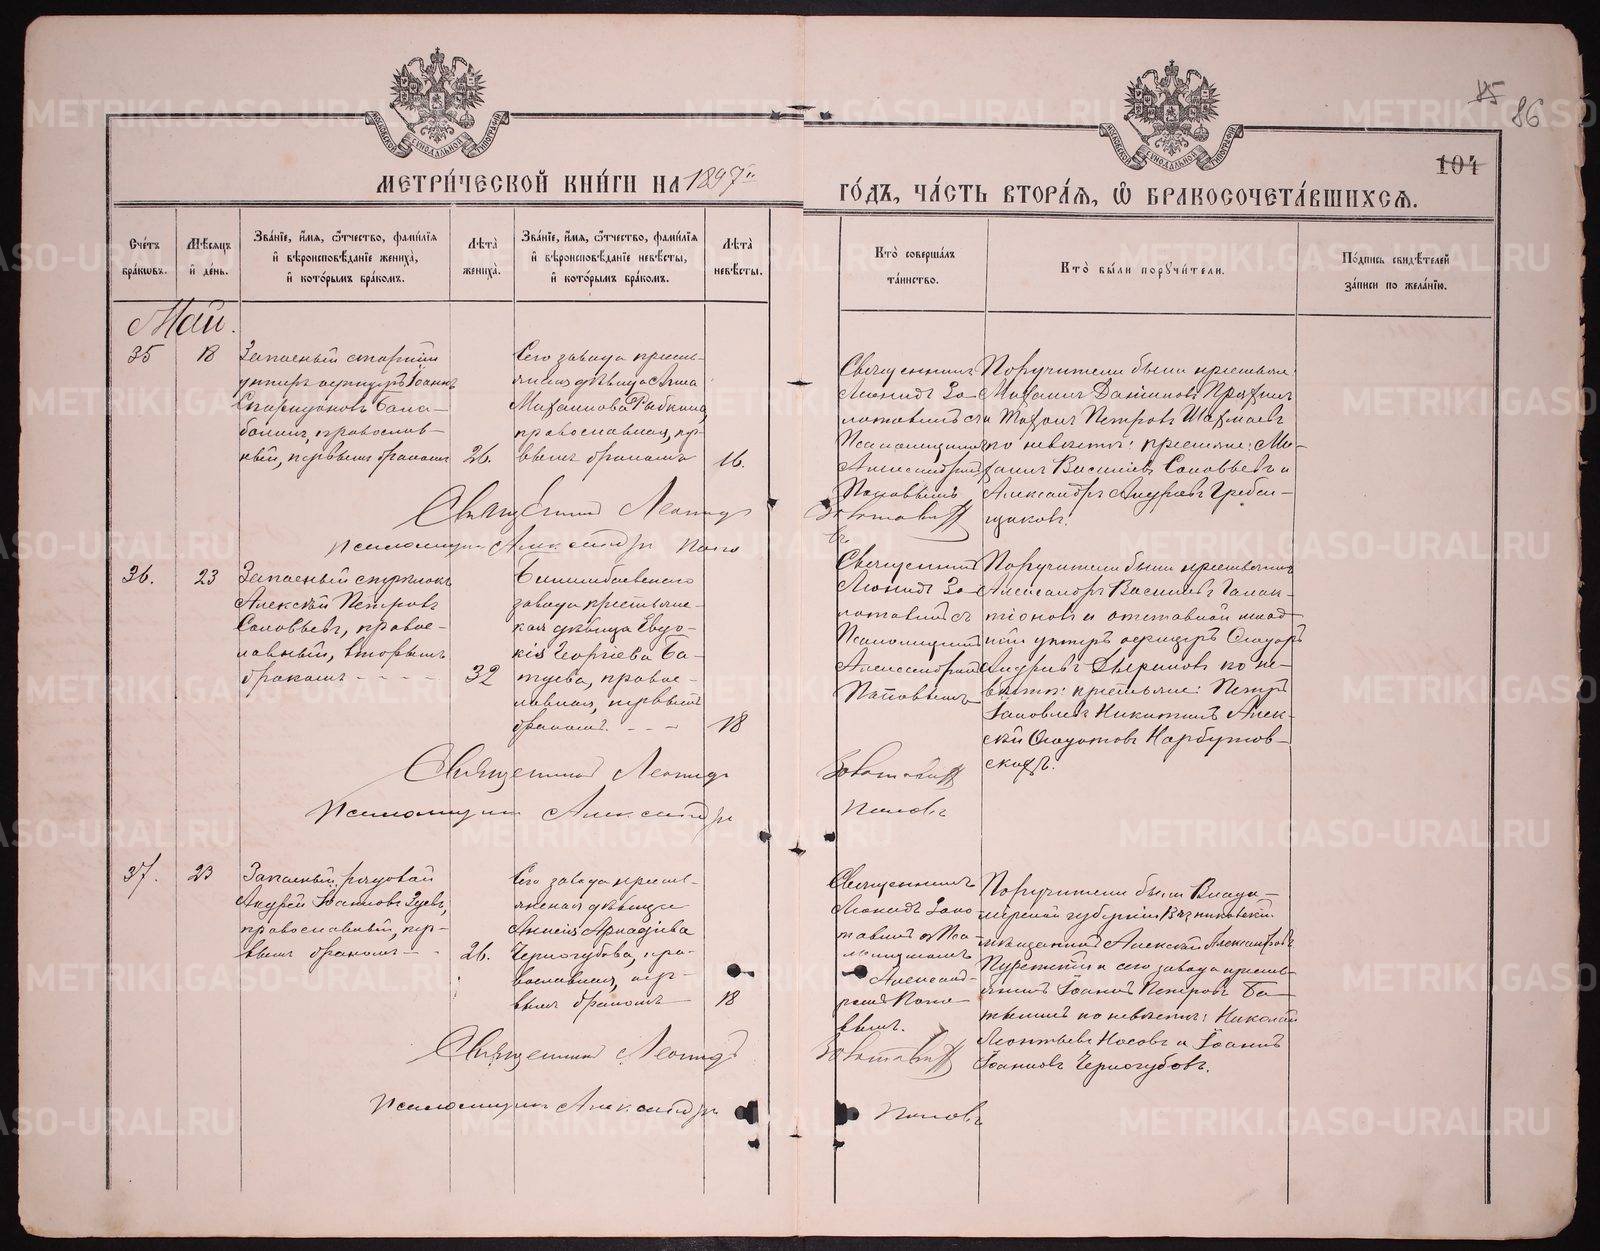 85
86
104
МЕТРИ́ЧЕСКОЙ КНИ́ГИ НА 1897й
ГО́ДЪ, ЧА́СТЬ ВТОРА́Ѧ, Ѽ БРАКОСОЧЕТА́ВШИХСѦ.
Сче́тъ бра́ковъ.
Мѣ́сяцъ и́ де́нь.
Зва́нїе, и҆́мя, ѻ҆́тчество, фами́лїя и҆ вѣроисповѣ́данїе жениха̀, и҆ кото́рымъ бра́комъ.
Лѣ́та жениха̀.
Зва́нїе, и҆́мя, ѻ҆́тчество, фами́лїя и҆ вѣроисповѣ́данїе невѣ́сты, и҆ кото́рымъ бра́комъ.
Лѣ́та невѣ́сты.
Кто̀ соверша́лъ та́инство.
Кто̀ бы́ли порꙋчи́тели.
По́дпись свидѣ́телей за́писи по жела́нїю.
Май.
35
18
Запасный старшій
унтеръ офицеръ Іоаннъ
Спиридоновъ Бала-
болинъ, православ-
ный, первымъ бракомъ
26.
Сего завода кресть-
янская дѣвица Анна
Михаилова Рябкина,
православная, пер-
вымъ бракомъ
16.
Священникъ
Леонидъ Зо-
лотавинъ съ
Псаломщикомъ
Александромъ
Поповымъ
Поручители были крестьяне:
Михаилъ
и Петровъ
по невѣстѣ: крестьяне: Ми-
хаилъ Василіевъ Соловьевъ и
Александръ Андреевъ Гребен-
щиковъ.
Священникъ Леонидъ Золотавинъ
псаломщикъ Александръ Поповъ
36.
23
Запасный
Алексѣй Петровъ
Соловьевъ, правос-
лавный, вторымъ
бракомъ - - - -
32
Билимбаевскаго
завода крестьянс-
кая дѣвица Евдо-
кія Георгіева Ба-
туева, правос-
лавная, первымъ
бракомъ. - - -
18
Священникъ
Леонидъ Зо-
лотавинъ съ
Псаломщикомъ
Александромъ
Поповымъ
Поручители были крестьянинъ
Александръ Василіевъ Галак-
тіоновъ и отставной млад-
шій унтеръ офицеръ Ѳеодоръ
Андреевъ по не-
вѣстѣ: крестьяне: Петръ
Яковлевъ Никитинъ Алек-
сѣй Ѳедотовъ Нарбутов-
скихъ.
Священникъ Леонидъ Золотавинъ
Псаломщикъ Александръ Поповъ
37.
23
Запасный рядовой
Андрей Іоанновъ Зуевъ,
православный, пер-
вымъ бракомъ - -
26.
Сего завода кресть-
янская дѣвица
Анисія Аркадіева
Черногубова, пра-
вославная, пер-
вымъ бракомъ
18
Священникъ
Леонидъ Золо-
тавинъ съ Пса-
ломщикомъ
Александ-
ромъ Попо-
вымъ.
Поручители были Влади-
мірской губерніи Вязниковскій
мѣщанинъ Алексѣй Александровъ
и сего завода кресть-
янинъ Іоаннъ Петровъ Ба-
по невѣстѣ: Николай
Леонтьевъ Носовъ и Іоаннъ
Іоанновъ Черногубовъ.
Священникъ Леонидъ Золотавинъ
Псаломщикъ Александръ Поповъ